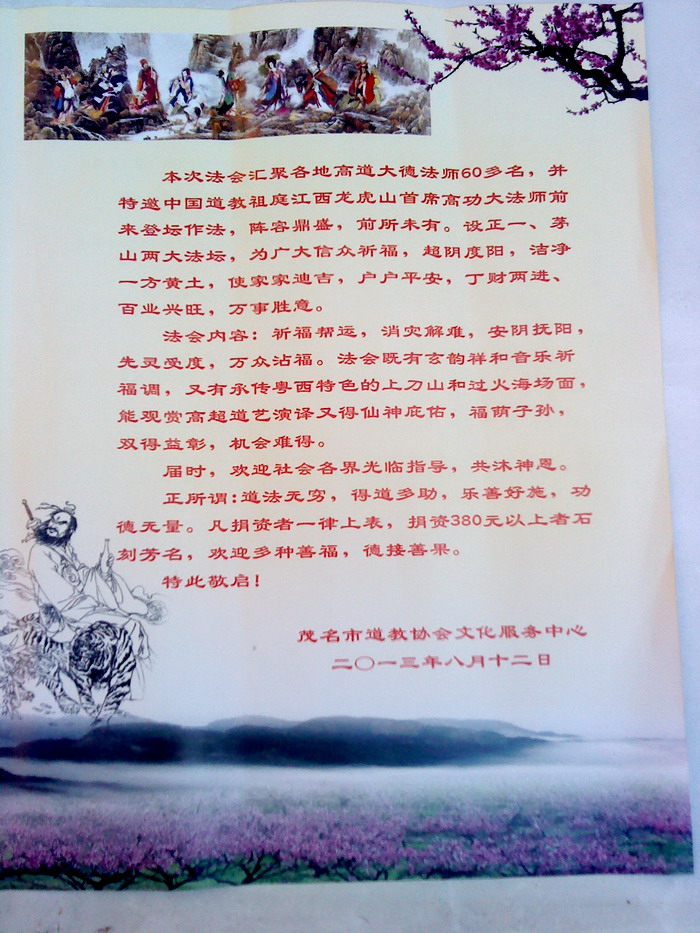 本次法会汇聚各地高道大德法师60多名，并
特邀中国道教祖庭江西龙虎山首席高功大法师前
来登坛作法，阵容鼎盛，前所未有。设正一、茅
山两大法坛，为广大信众祈福，超阴度阳，洁净
一方黄土，使家家迪吉，户户平安，丁财两进、
百业兴旺，万事胜意。
法会内容：祈福帮运，消灾解难，安阴抚阳，
先灵受度，万众沾福。法会既有玄韵祥和音乐祈
福调，又有承传粤西特色的上刀山和过火海场面，
能观赏高超道艺演译又得仙神庇佑，福荫子孙，
双得益彰，机会难得。
届时，欢迎社会各界光临指导，共沐神恩。
正所谓：道法无穷，得道多助，乐善好施，功
德无量。凡捐资者一律上表，捐资380元以上者石
刻芳名，欢迎多种善福，德接善果。
特此敬启！
茂名市道教协会文化服务中心
二〇一三年八月十二日